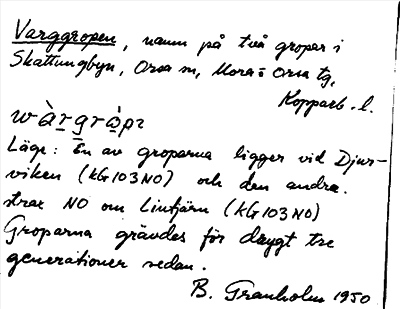 Varggropen, namn på två gropar i
Skattungbyn, Orsa sn, Mora o Orsa tg,
Kopparb. l.
wàrgràpı
Läge: En av groparna ligger vid Djur-
viken (kG103NO) och den andra
strax NO om Lintjärn (kG103NO)
Groparna grävdes för drygt tre
generationer sedan.
B. Granholm 1950